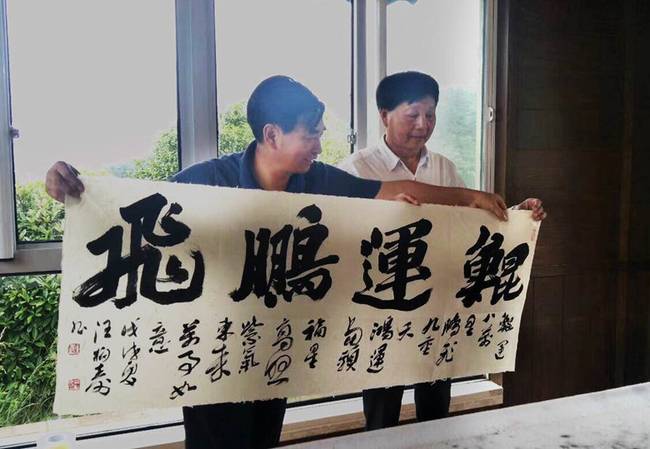 鯤運鵬飛
鯤運
八萬
里
鵬飛
九重
天
鴻運
當頭
福星
高照
紫氣
東來
萬事如
意
戊戌夏